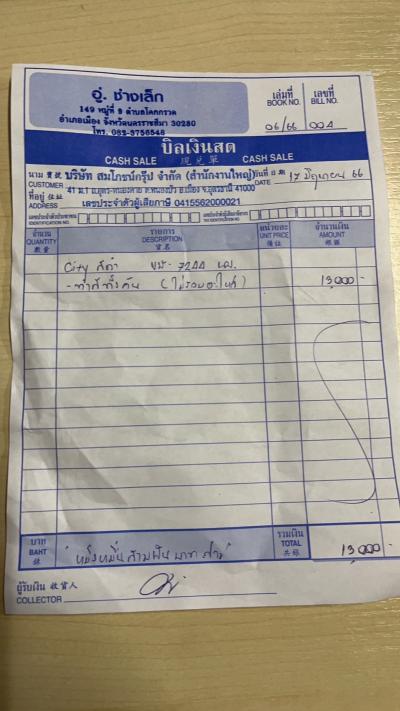 อู่. ช่างเล็ก
149 หมู่ที่ 8 ตำบลโคกกรวด
อำเภอเมือง จังหวัดนครราชสีมา 30280
โทร. 082-3756548
เล่มที่ เลขที่
BOOK NO. BILL NO.
06/66 004
บิลเงินสด
CASH SALE 現兑單 CASH SALE
นาม บริษัท สมโภชน์กรุ๊ป จำกัด (สำนักงานใหญ่) วันที่
CUSTOMER 41 ม.1 จ.อุดรธานี 41000 DATE 17 มิถุนายน 66
ที่อยู่
ADDRESS เลขประจำตัวผู้เสียภาษี 0415562000021
จำนวน รายการ หน่วยละ จำนวนเงิน
QUANTITY DESCRIPTION UNIT PRICE AMOUNT
數量 貨名 價位 銀碼
City สีดำ ขม-7244 นม.
-ทำสีทั้งคัน (ไม่รวมอะไหล่) 13,000 -
บาท รวมเงิน
BAHT หนึ่งหมื่นสามพันบาทถ้วน TOTAL 13,000 -
銖 共銀
ผู้รับเงิน 收貨人
COLLECTOR